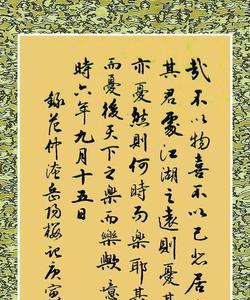 哉不以物喜不以己悲居
其君處江湖之遠則憂其
亦憂然則何時而樂耶其
而憂後天下之樂而樂歟噫
時六年九月十五日
錄范仲淹岳陽樓記庚寅